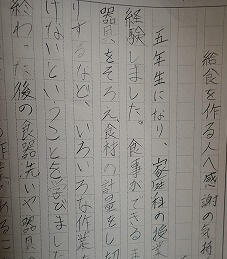 給食を作る人へ感謝の気持
五年生になり、家庭科の授業
経験しました。食事ができるま
器具をそろえ食材の計量をし切
りするなど、いろいろな作業を
けないということを学びました
終わった後の食器洗いや器具の